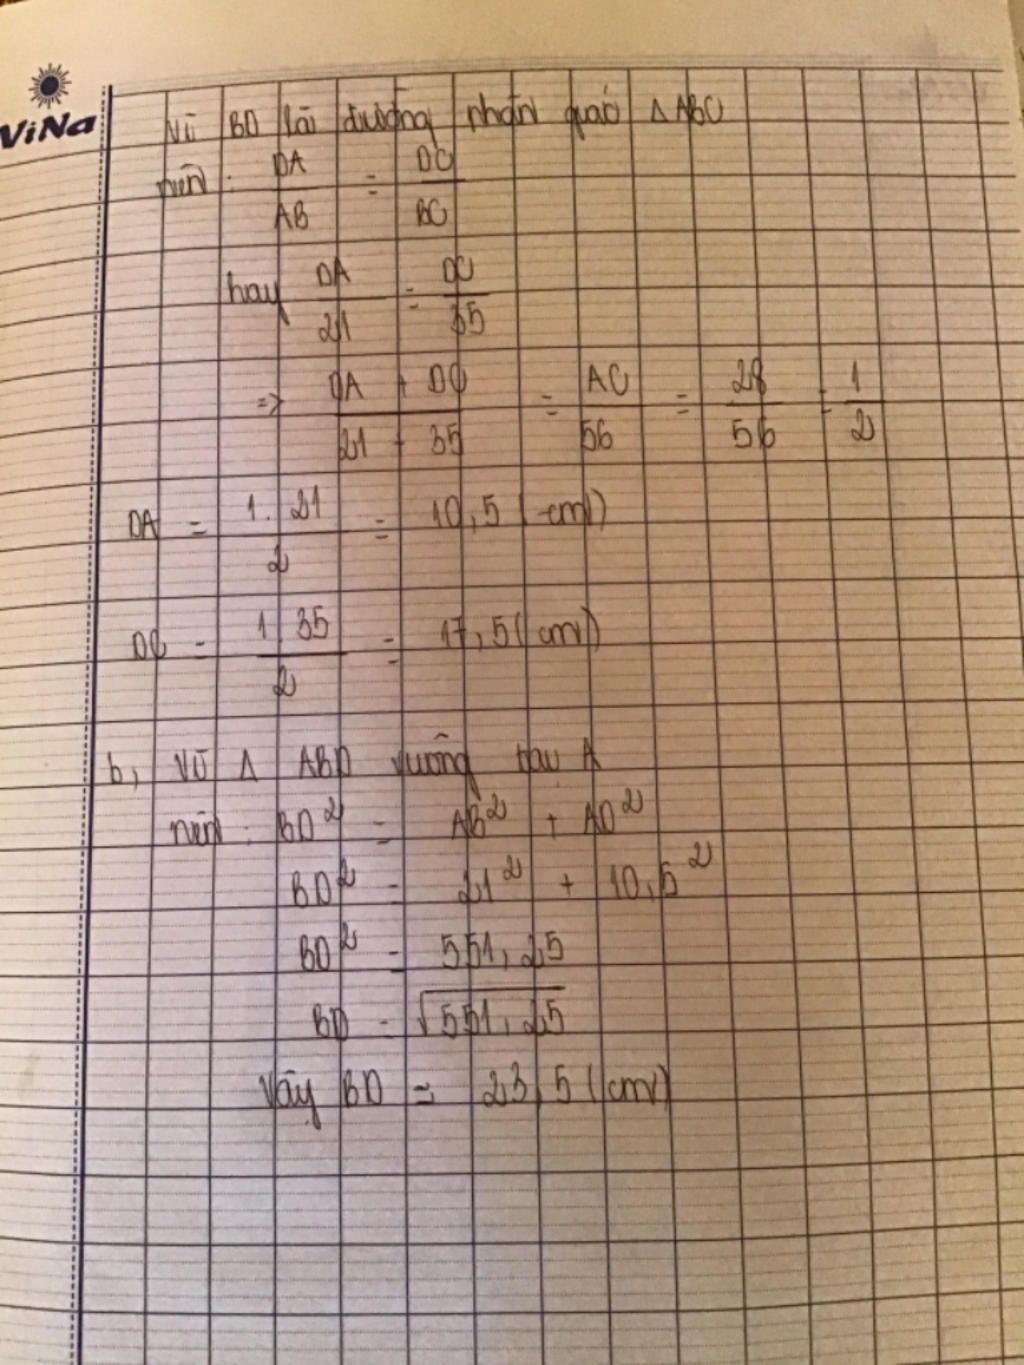 ViNa
Vì BD là đường phân giác Δ ABC
nên : DA/AB = DC/BC
hay DA/21 = DC/35
=> DA + DC / 21 + 35 = AC/56 = 28/56 = 1/2
DA = 1.21/2 = 10,5 (cm)
DC = 1.35/2 = 17,5 (cm)
b, Vì Δ ABD vuông tại A
nên : BD² = AB² + AD²
BD² = 21² + 10,5²
BD² = 551,25
BD = √551,25
Vậy BD = 23,5 (cm)